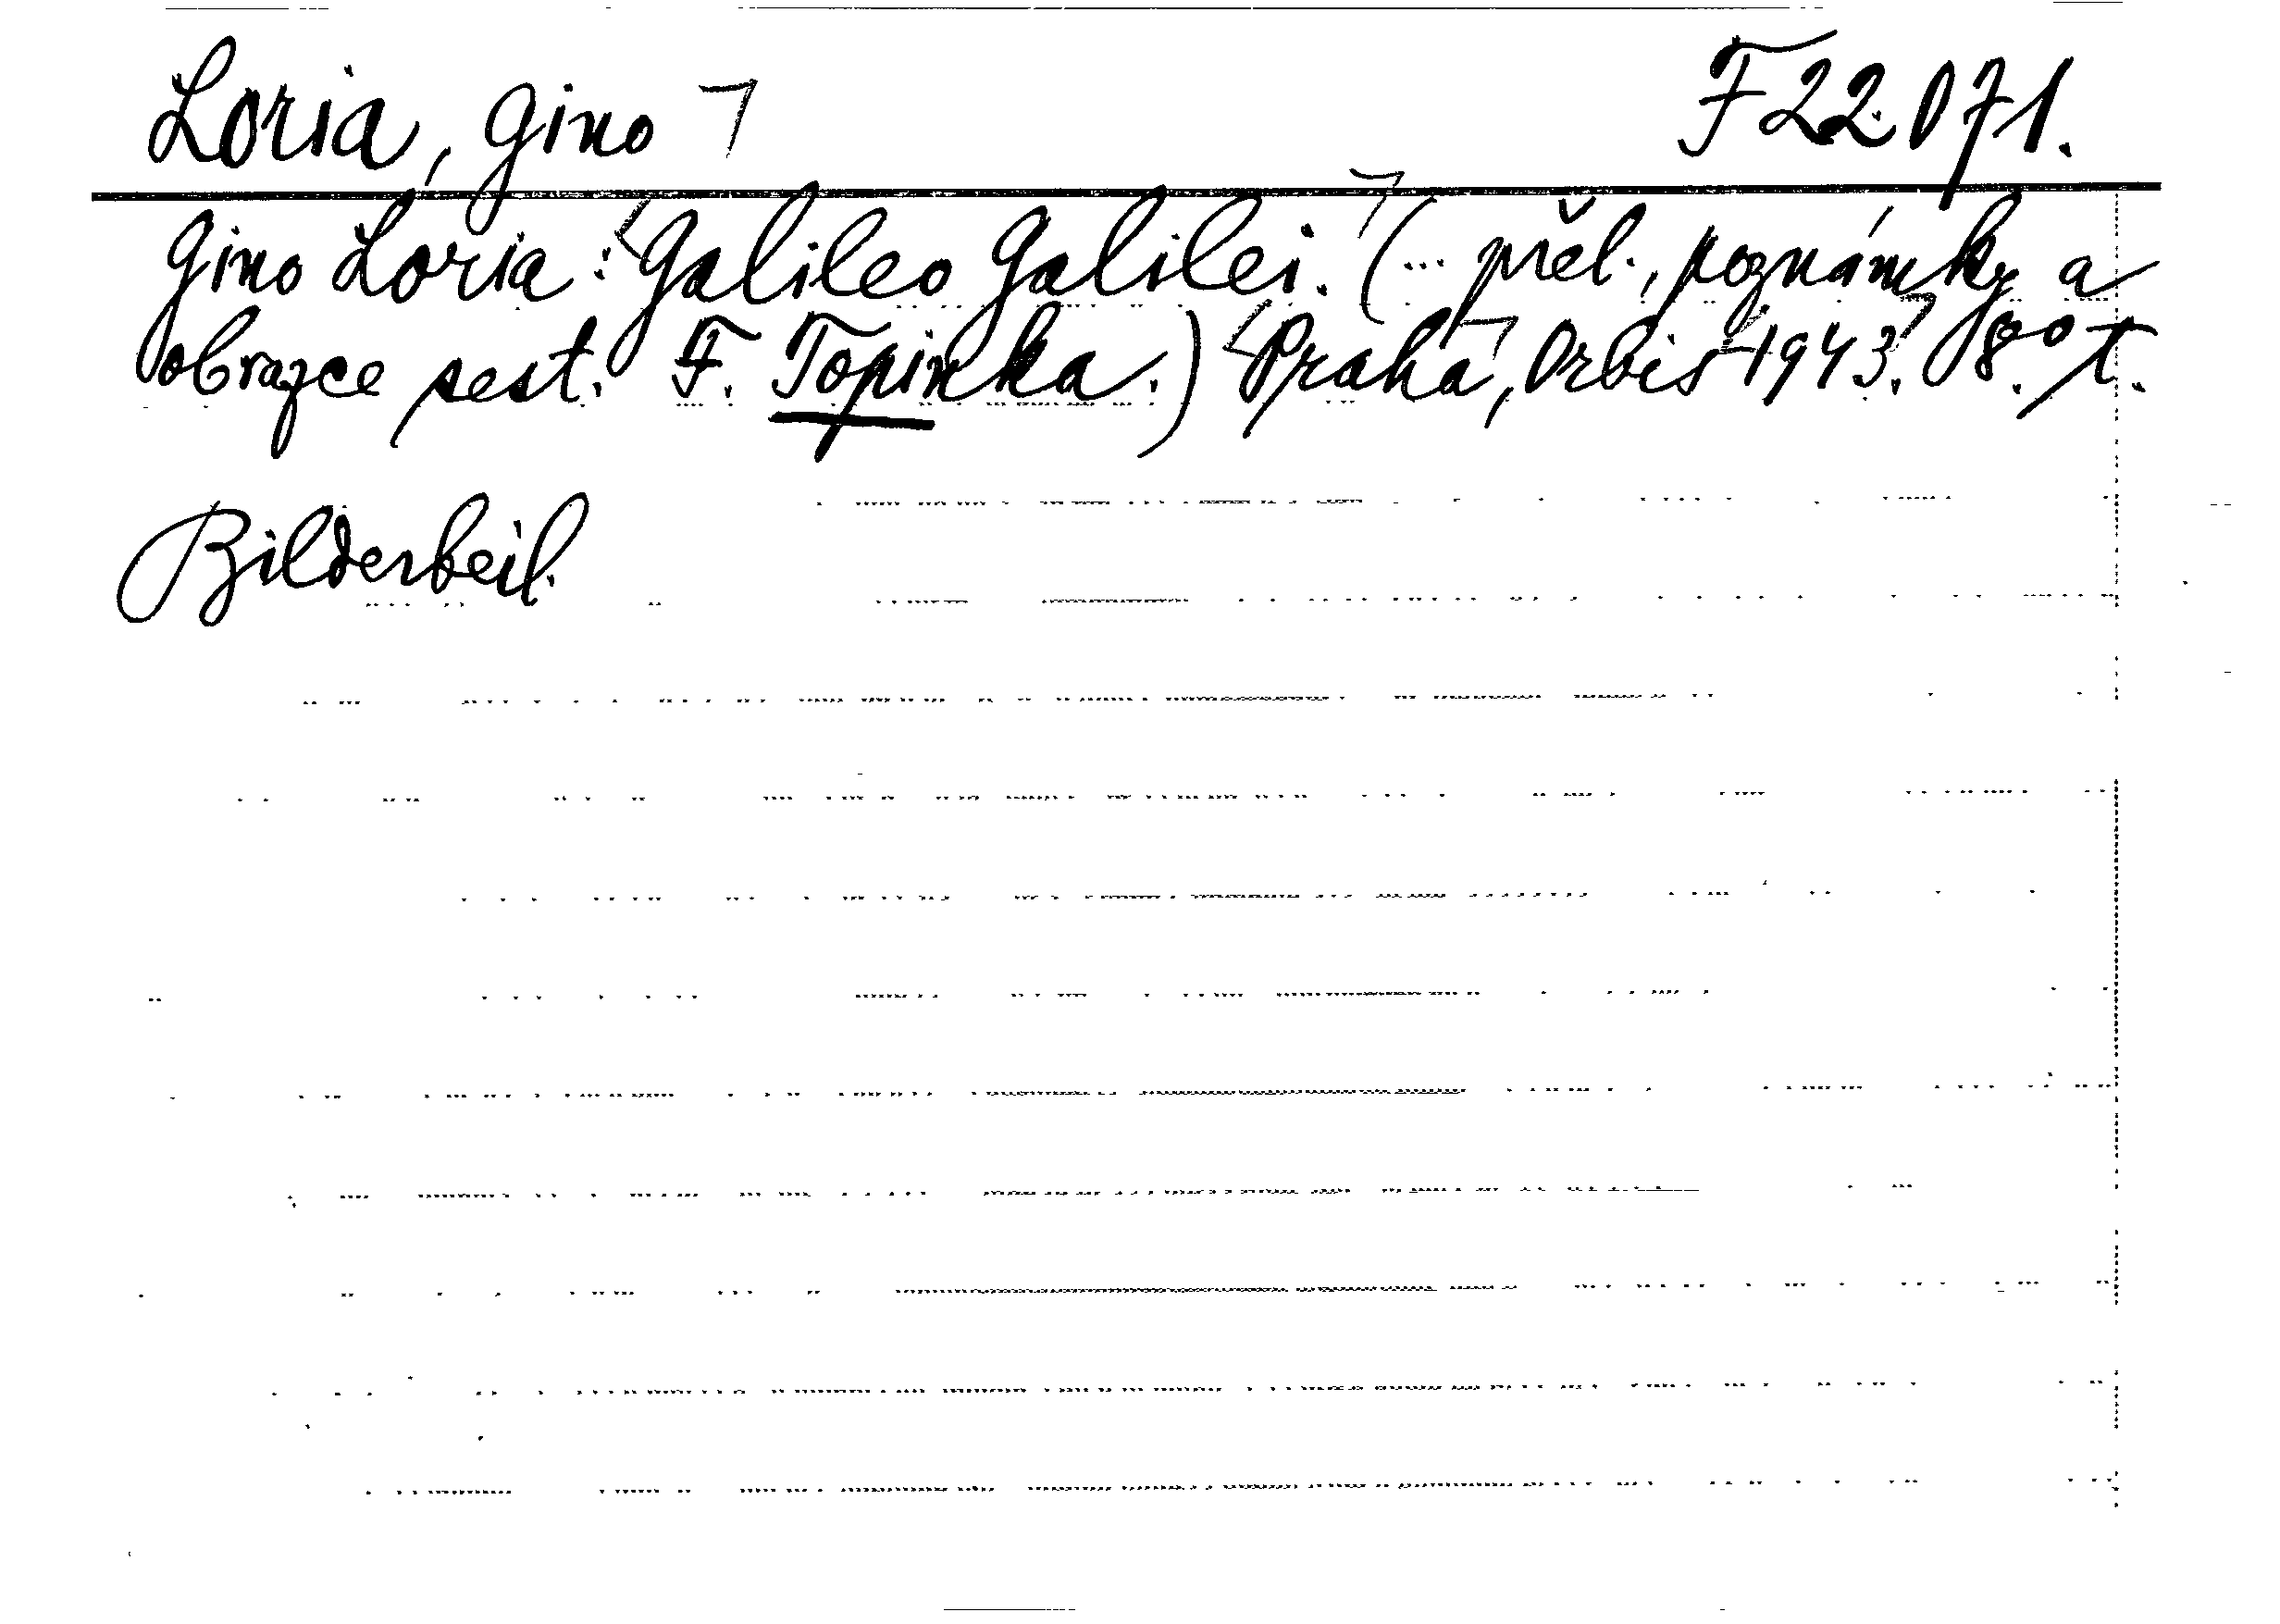 Loria, Gino F 22.071.
Gino Loria: Galileo Galilei. (... přel., poznámky a
obrazce sest. F. Topinka.) Praha, Orbis 1943. 8.° T.
Bilderbeil.